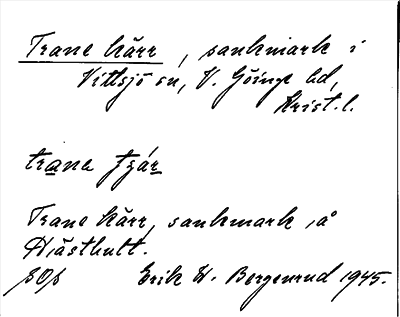 Trane kärr, sankmark i
Vittsjö sn, V. Göinge hd,
Krist. l.
trana tjär
Trane kärr, sankmark å
Hästhult.
SOf Erik W. Bergenrud 1945.